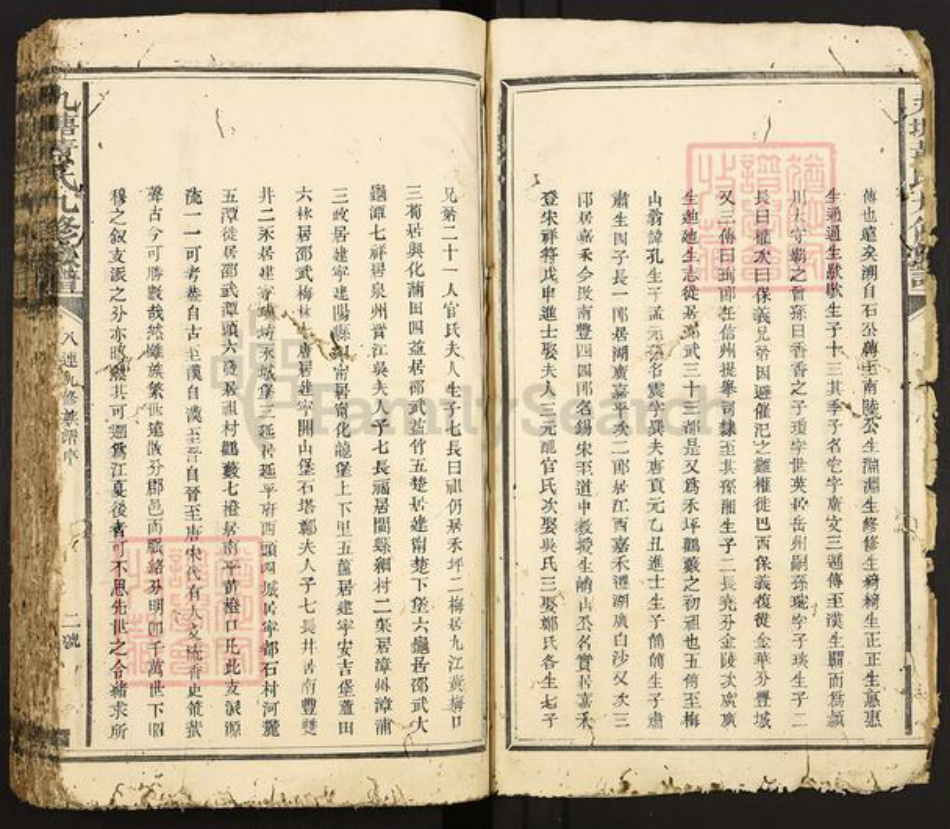 傳也遠矣溯自石公傳至南陵公生淵淵生修修生綺綺生正正生惠惠
生通通生歇歇生子十三其季子名它字廣文三遞傳至漢生霸而爲潁
川太守霸之曾孫曰香香之子瓊字世英居岳州嗣孫琬字子琰生子二
長曰權次曰保義兄弟因避催汜之難權徙巴西保義復從金華分豐城
又三傳曰珣郎任信州提舉司隸至其孫湘生子二長堯分金陵次廣廣
生迪迪生志從居邵武三十三都是又爲禾坪鸛藪之初祖也五傳至梅
山翁諱孔生子孟元孫名震學異夫唐貢元乙丑進士生子簡簡生子肅
肅生四子長一郎居湖廣嘉平次二郎居江西嘉禾遷湖廣白沙又次三
郎居嘉禾今改南豐四四郎名錫宋至道中教授生峭山公名實居嘉禾
登宋祥符戊申進士娶夫人三元配官氏次娶吳氏三娶鄭氏各生七子
兄弟二十一人官氏夫人生子七長曰祖仍居禾坪二梅居九江黃梅口
三荀居興化莆田四益居邵武益竹五楚居建甯楚下堡六龜居邵武大
龜潭七祥居泉州晋江吳夫人子七長福居閩縣綱村二葉居漳州漳浦
三政居建寧建陽縣四甯居甯化龍堡上下里五薀居建寧安吉堡薀田
六林居邵武梅林七唐居建寧開山堡石塔鄭夫人子七長井居南豐雙
井二禾居建寧璜埼永城堡三延居延平府西頭四城居寧都石村河巖
五潭徒居邵武潭頭六發居祖村鸛藪七橙居南平黃橙口凡此支派源
流一一可考葢自古至漢自漢至晋自晉至唐宋代有人文流香史策蜚
聲古今可勝數哉然雖族繁世遠散分郡邑而脈絡分明卽千萬世下昭
穆之叙支派之分亦時燃其可遡爲江夏後者可不思先世之令緒求所
九修族譜
八連九修族譜序
二號
FamilySearch